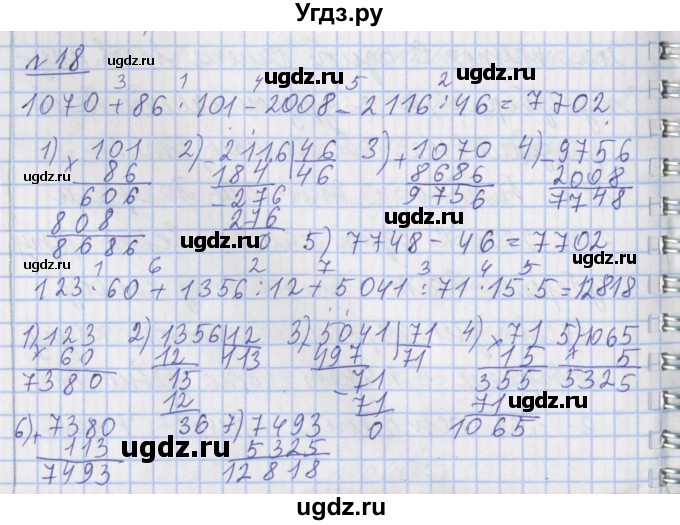 Угдз.ру
№18
3 1 4 5 2
1070 + 86 · 101 - 2008 - 2116 : 46 = 7702
1) 101 2) 2116 | 46 3) 1070 4) 9756
× 86 - 184 | 46 + 8686 - 2008
606 - 276 9756 7748
808 276
8686 0 5) 7748 - 46 = 7702
1 6 2 7 3 4 5
123 · 60 + 1356 : 12 + 5041 : 71 · 15 · 5 = 12818
1) 123 2) 1356 | 12 3) 5041 | 71 4) 71 5) 1065
× 60 12 | 113 497 | 71 × 15 × 5
7380 15 - 71 355 5325
12 71 71
6) 7380 36 7) 7493 0 1065
+ 113 5325
7493 12818
ugdz.ru
ugdz.ru
ugdz.ru
ugdz.ru
ugdz.ru
ugdz.ru
ugdz.ru
ugdz.ru
ugdz.ru
ugdz.ru
ugdz.ru
ugdz.ru
Угдз.ру